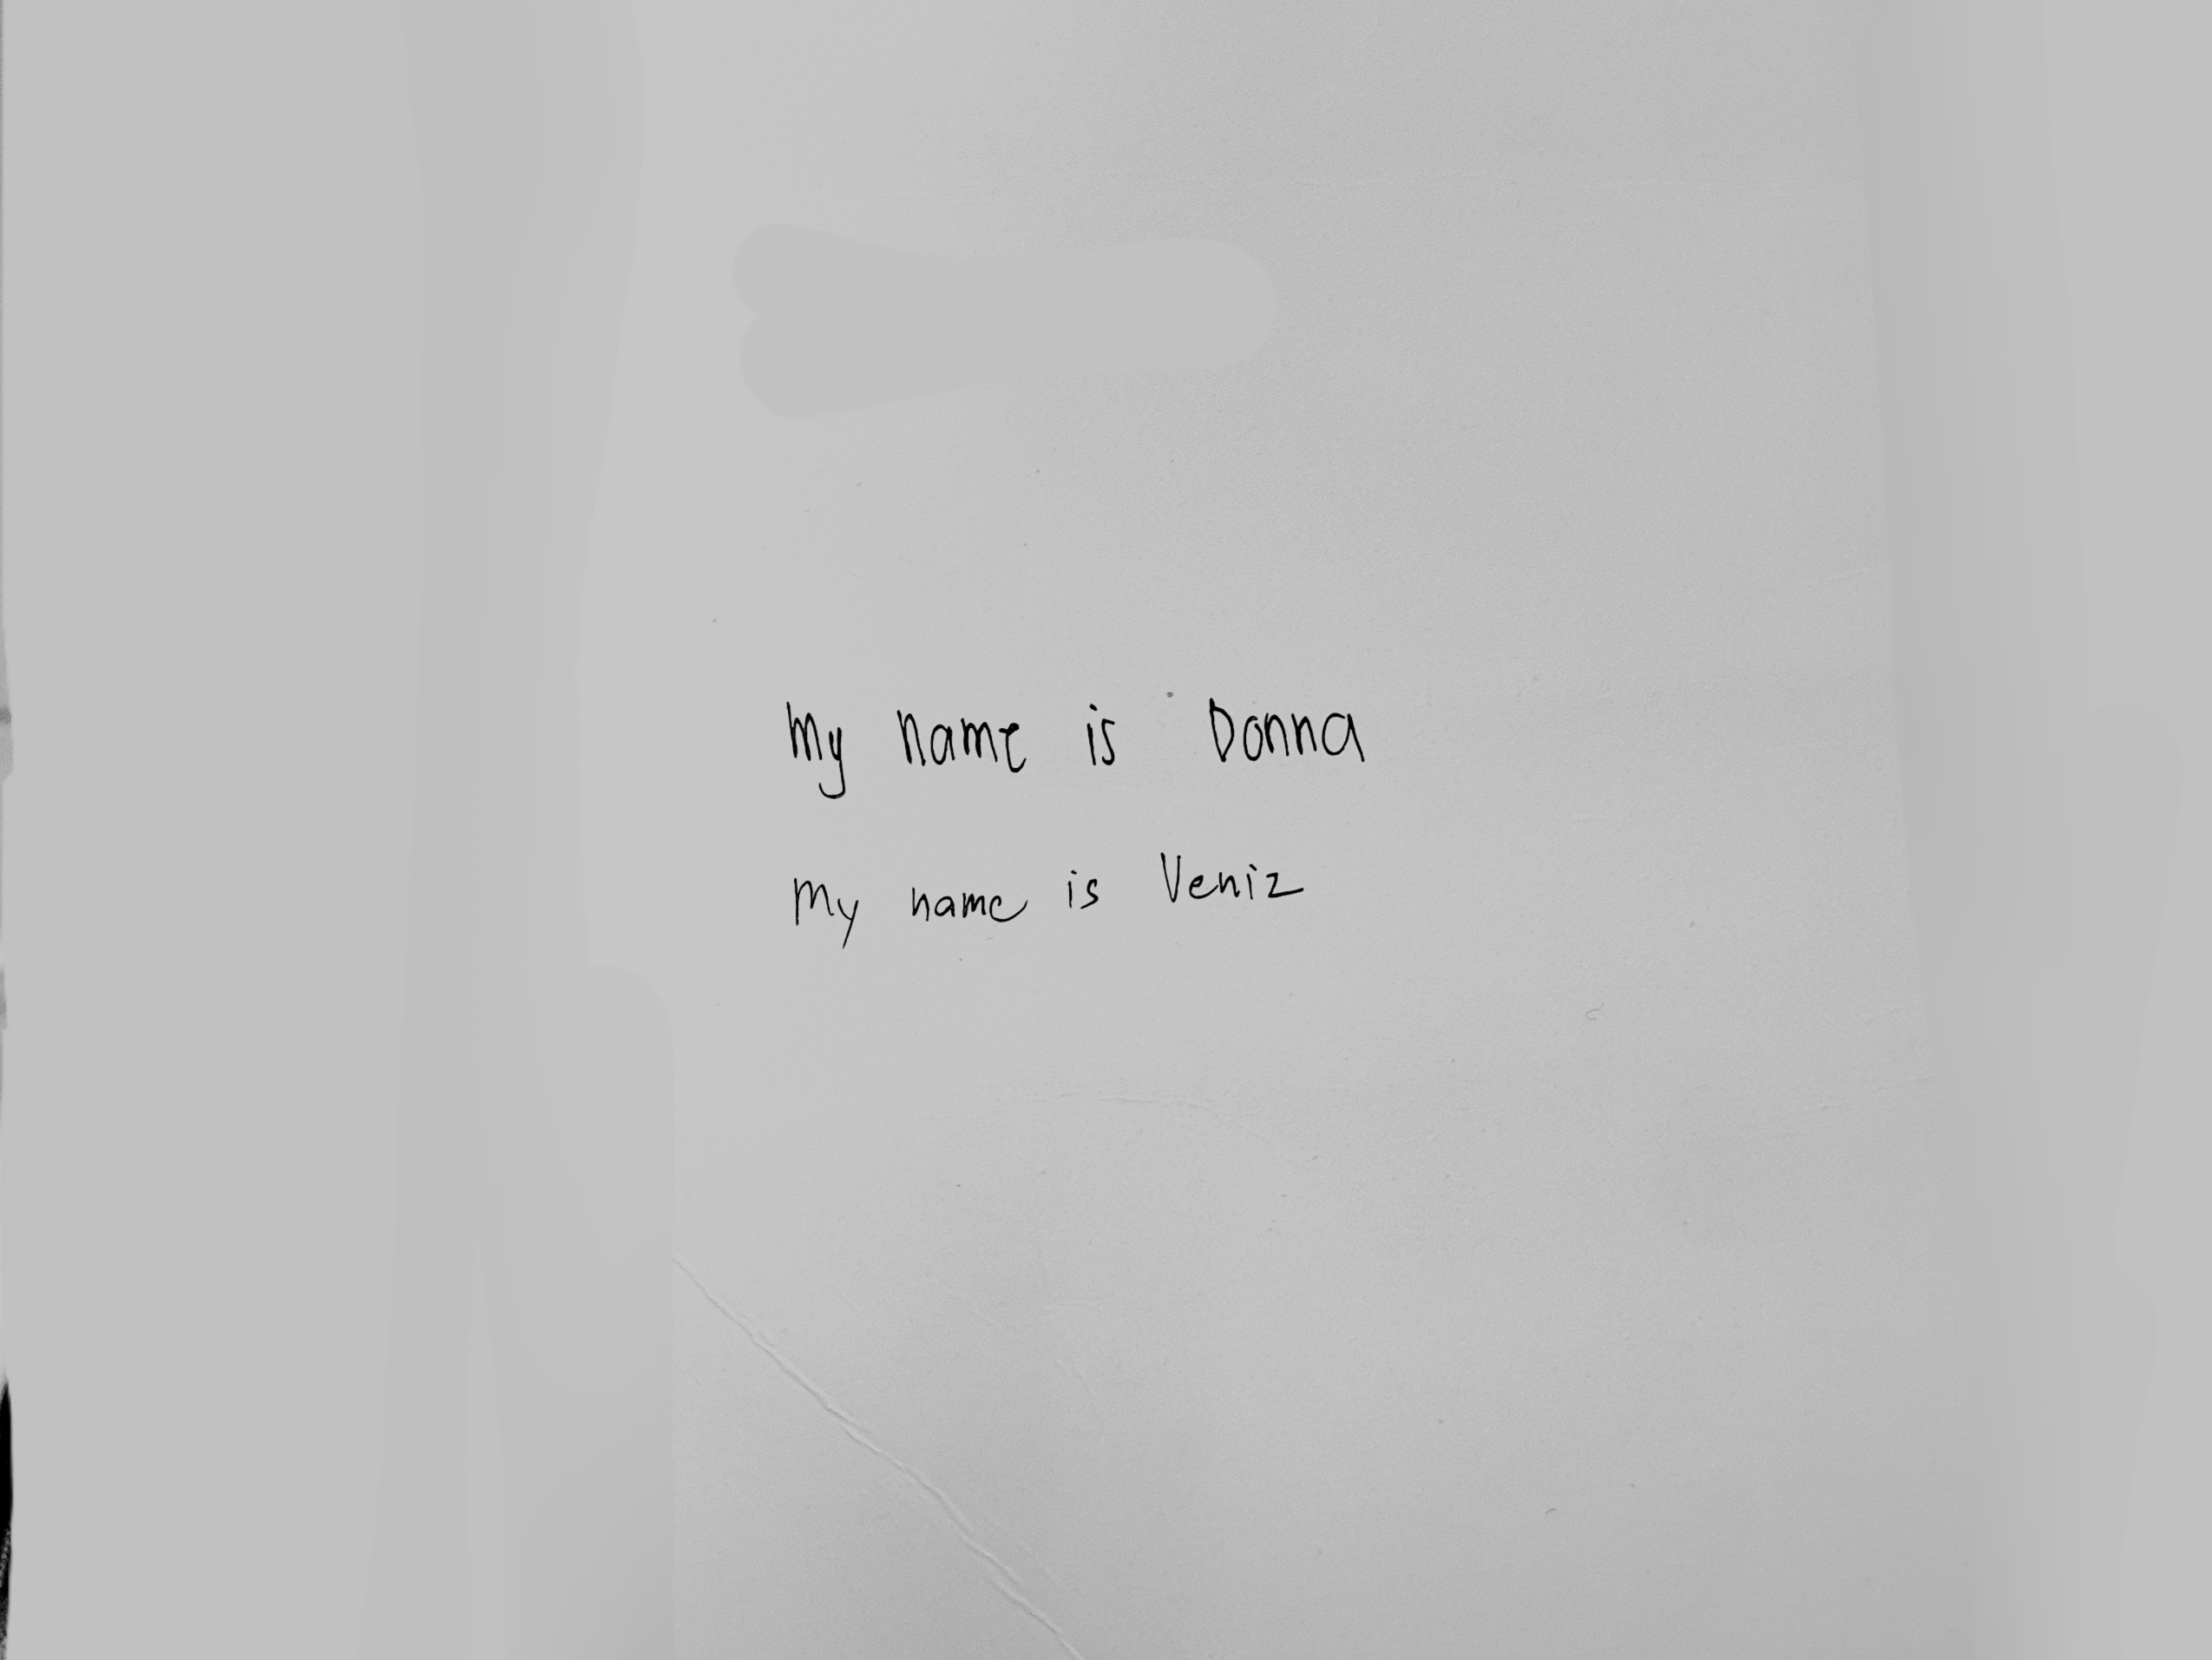 My name is Donna
My name is Veniz